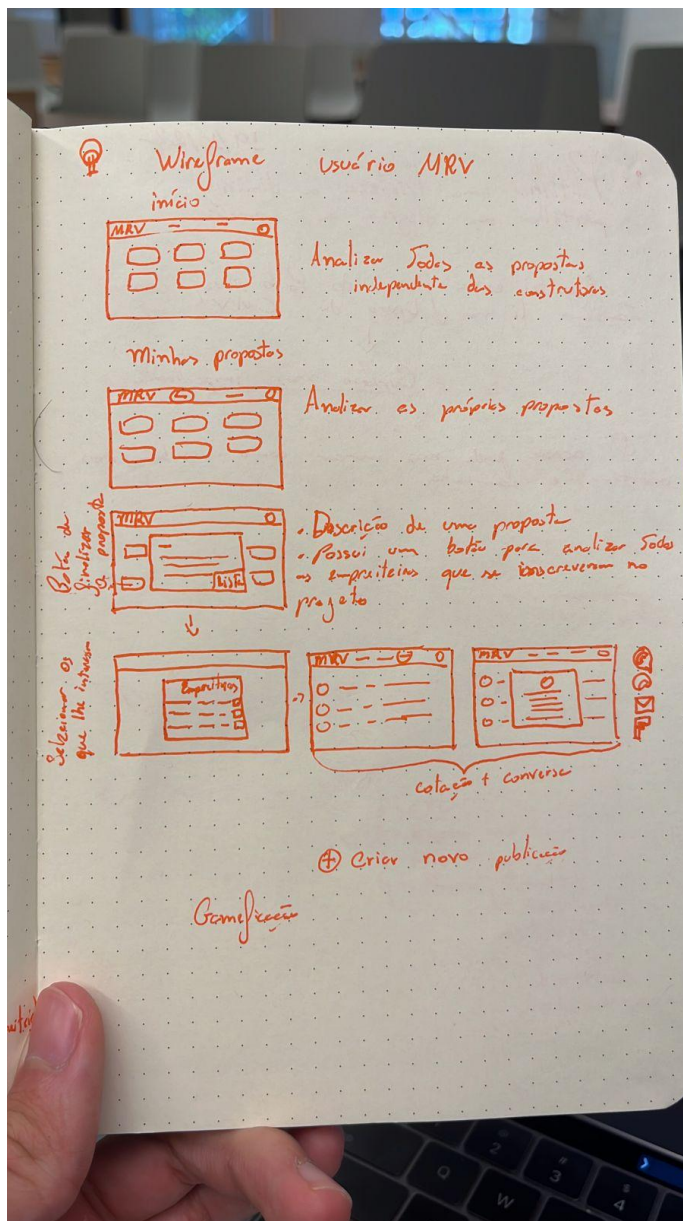 Wireframe usuário MRV
início
MRV
Analizar Todas as propostas
independente das construtoras
Minhas propostas
MRV
Analizar as próprias propostas
Botão de
finalizar
a proposta
MRV
Lista
• Descrição de uma proposta
• Possui um botão para analizar Todos
os empreiteiros que se inscreveram no
projeto
Selecionar os
que lhe interessam
Empreiteiros
MRV
MRV
cotação + conversa
+ Criar novo publicação
Gameficação